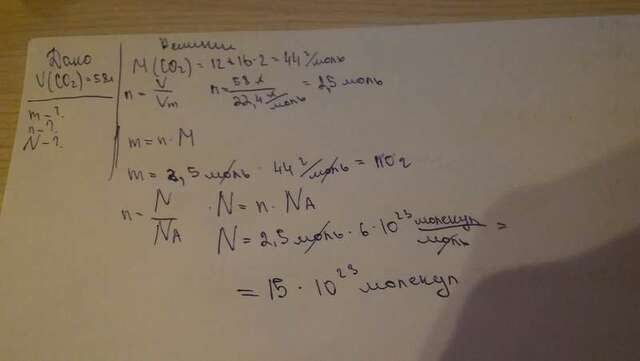 Дано
V(CO₂)=58л
m-?.
n-?.
N-?.
Решение
M(CO₂)=12+16·2=44 г/моль
n= V/Vm n= 58 л/22,4 л/моль = 2,5 моль
m=n·M
m= 2,5 моль · 44 г/моль = 110 г
n= N/NA · N= n · NA
N= 2,5 моль · 6·10²³ молекул/моль =
= 15 · 10²³ молекул